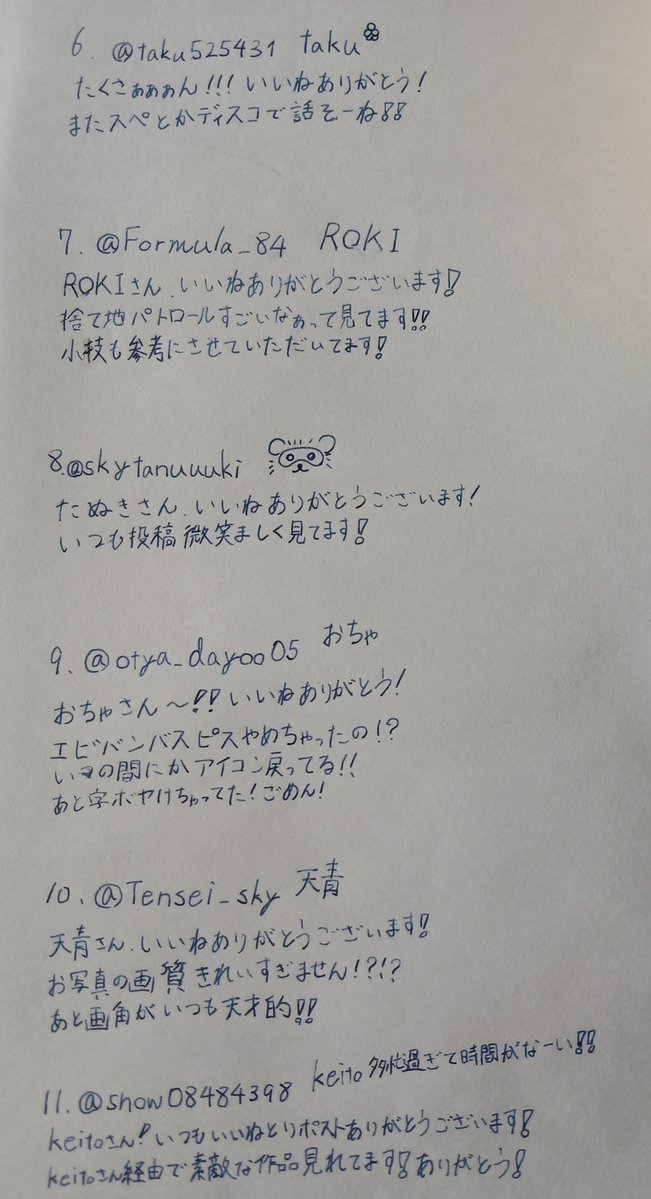 6. @taku525431 taku
たくさぁぁぁん!!! いいねありがとう!
またスペとかディスコで話そーね!!
7. @Formula_84 ROKI
ROKIさん、いいねありがとうございます!
捨て地パトロールすごいなぁって見てます!!
小枝も参考にさせていただいてます!
8.@skytanuuuki
たぬきさん、いいねありがとうございます!
いつも投稿微笑ましく見てます!
9. @otya_dayoo05 おちゃ
おちゃさん〜!! いいねありがとう!
エビバンバスピスやめちゃったの!?
いつの間にかアイコン戻ってる!!
あと字ボヤけちゃってた!ごめん!
10. @Tensei_sky 天青
天青さん、いいねありがとうございます!
お写真の画質きれいすぎません!?!?
あと画角がいつも天才的!!
11. @show08484398 keito 多忙過ぎて時間がなーい!!
keitoさん! いつもいいねとリポストありがとうございます!
keitoさん経由で素敵な作品見れてます!ありがとう!